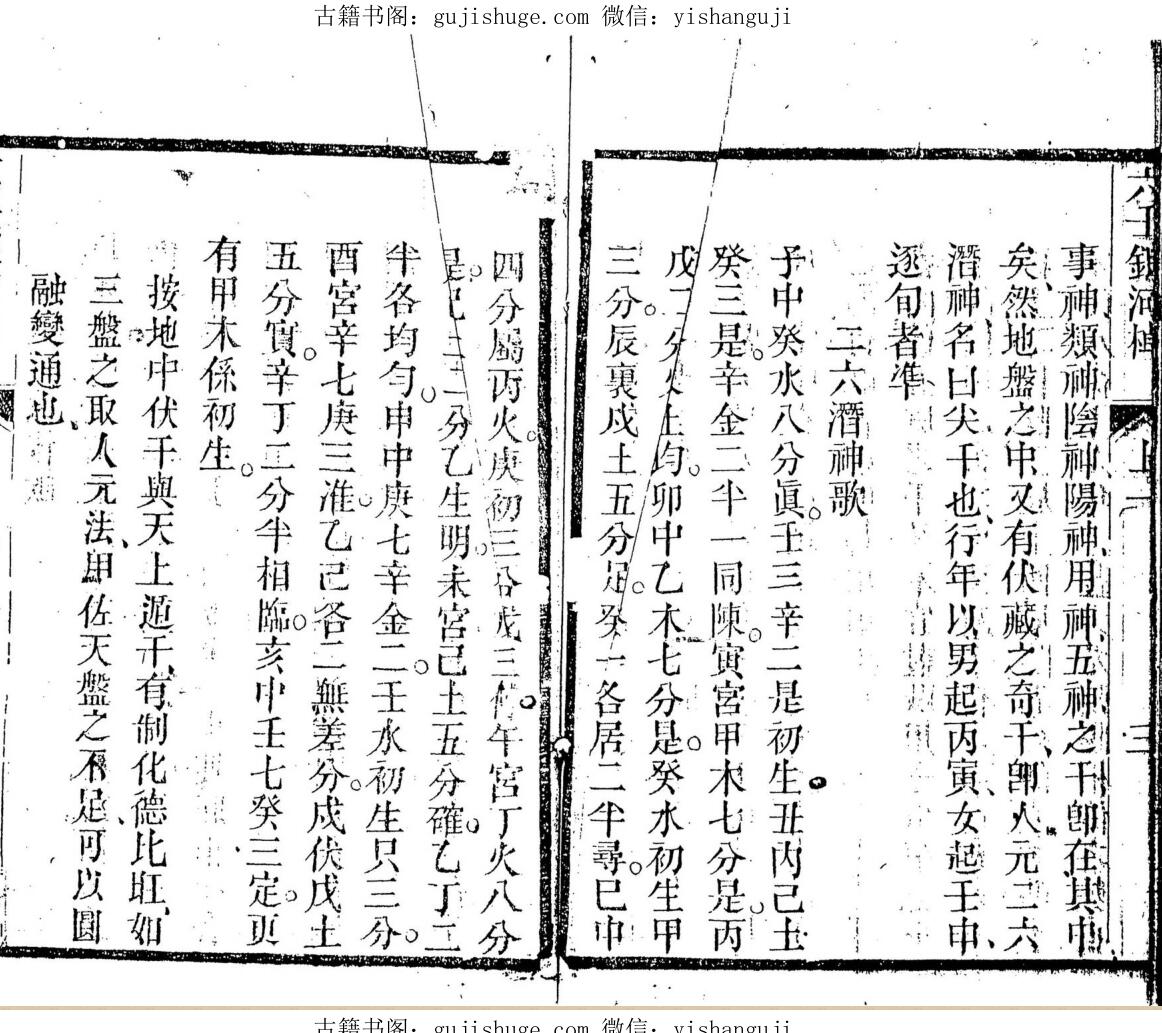 古籍书阁：gujishuge.com 微信：yishanguji
六壬銀河棹
上
三
事神類神陰神陽神用神五神之干卽在其中
矣然地盤之中又有伏藏之奇干卽人元二六
潛神名曰尖干也行年以男起丙寅女起壬申
逐旬者準
二六潛神歌
子中癸水八分眞壬三辛二是初生丑內己土
癸三是辛金二半一同陳寅宮甲木七分是丙
戊二分火土均卯中乙木七分是癸水初生甲
三分辰裏戊土五分足癸一各居二半尋巳中
四分屬丙火庚初三分戊三 午宮丁火八分
是己土二分乙生明未宮己土五分確乙丁二
半各均勻申中庚七辛金二壬水初生只三分
酉宮辛七庚三准乙己各二無差分戌伏戊土
五分實辛丁二分半相臨亥中壬七癸三定更
有甲木係初生
按地中伏干與天上遁干有制化德比旺如
三盤之取人元法用佐天盤之不足可以圓
融變通也
古籍书阁：gujishuge.com 微信：yishanguji